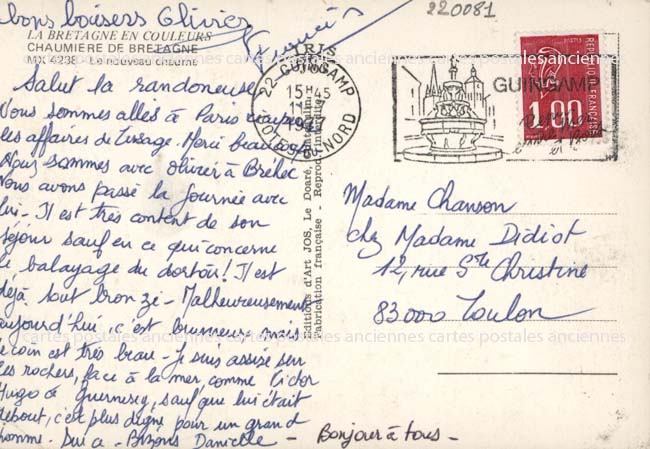 bons baisers Olivier
220081
LA BRETAGNE EN COULEURS
CHAUMIERE DE BRETAGNE
MX 4238 - Le nouveau chaume
Salut la randoneuse
Nous sommes allés à Paris
les affaires de Lissage. Merci beaucoup
Nous sommes avec olivier à Bréhec
Nous avons passé la journée avec
lui - Il est très content de son
séjour sauf en ce qui concerne
le balayage du dortoir! Il est
déjà tout bronzé - Malheureusement
aujourd'hui, c'est brumeux mais
le coin est très beau - Je suis assise sur
les rochers, face à la mer, comme Victor
Hugo à Guernesey, sauf que lui était
debout, c'est plus digne pour un grand
homme. Danielle - Bonjour à tous -
22 GUINGAMP
15H45
COTES DU NORD
GUINGAMP
REPUBLIQUE FRANCAISE
1,00
Editions d'Art JOS, Le Doaré, Châteaulin
Fabrication française - Reproduction interdite
Madame Chanson
chez Madame Didiot
12, rue Ste Christine
83000 Toulon
cartes postales anciennes